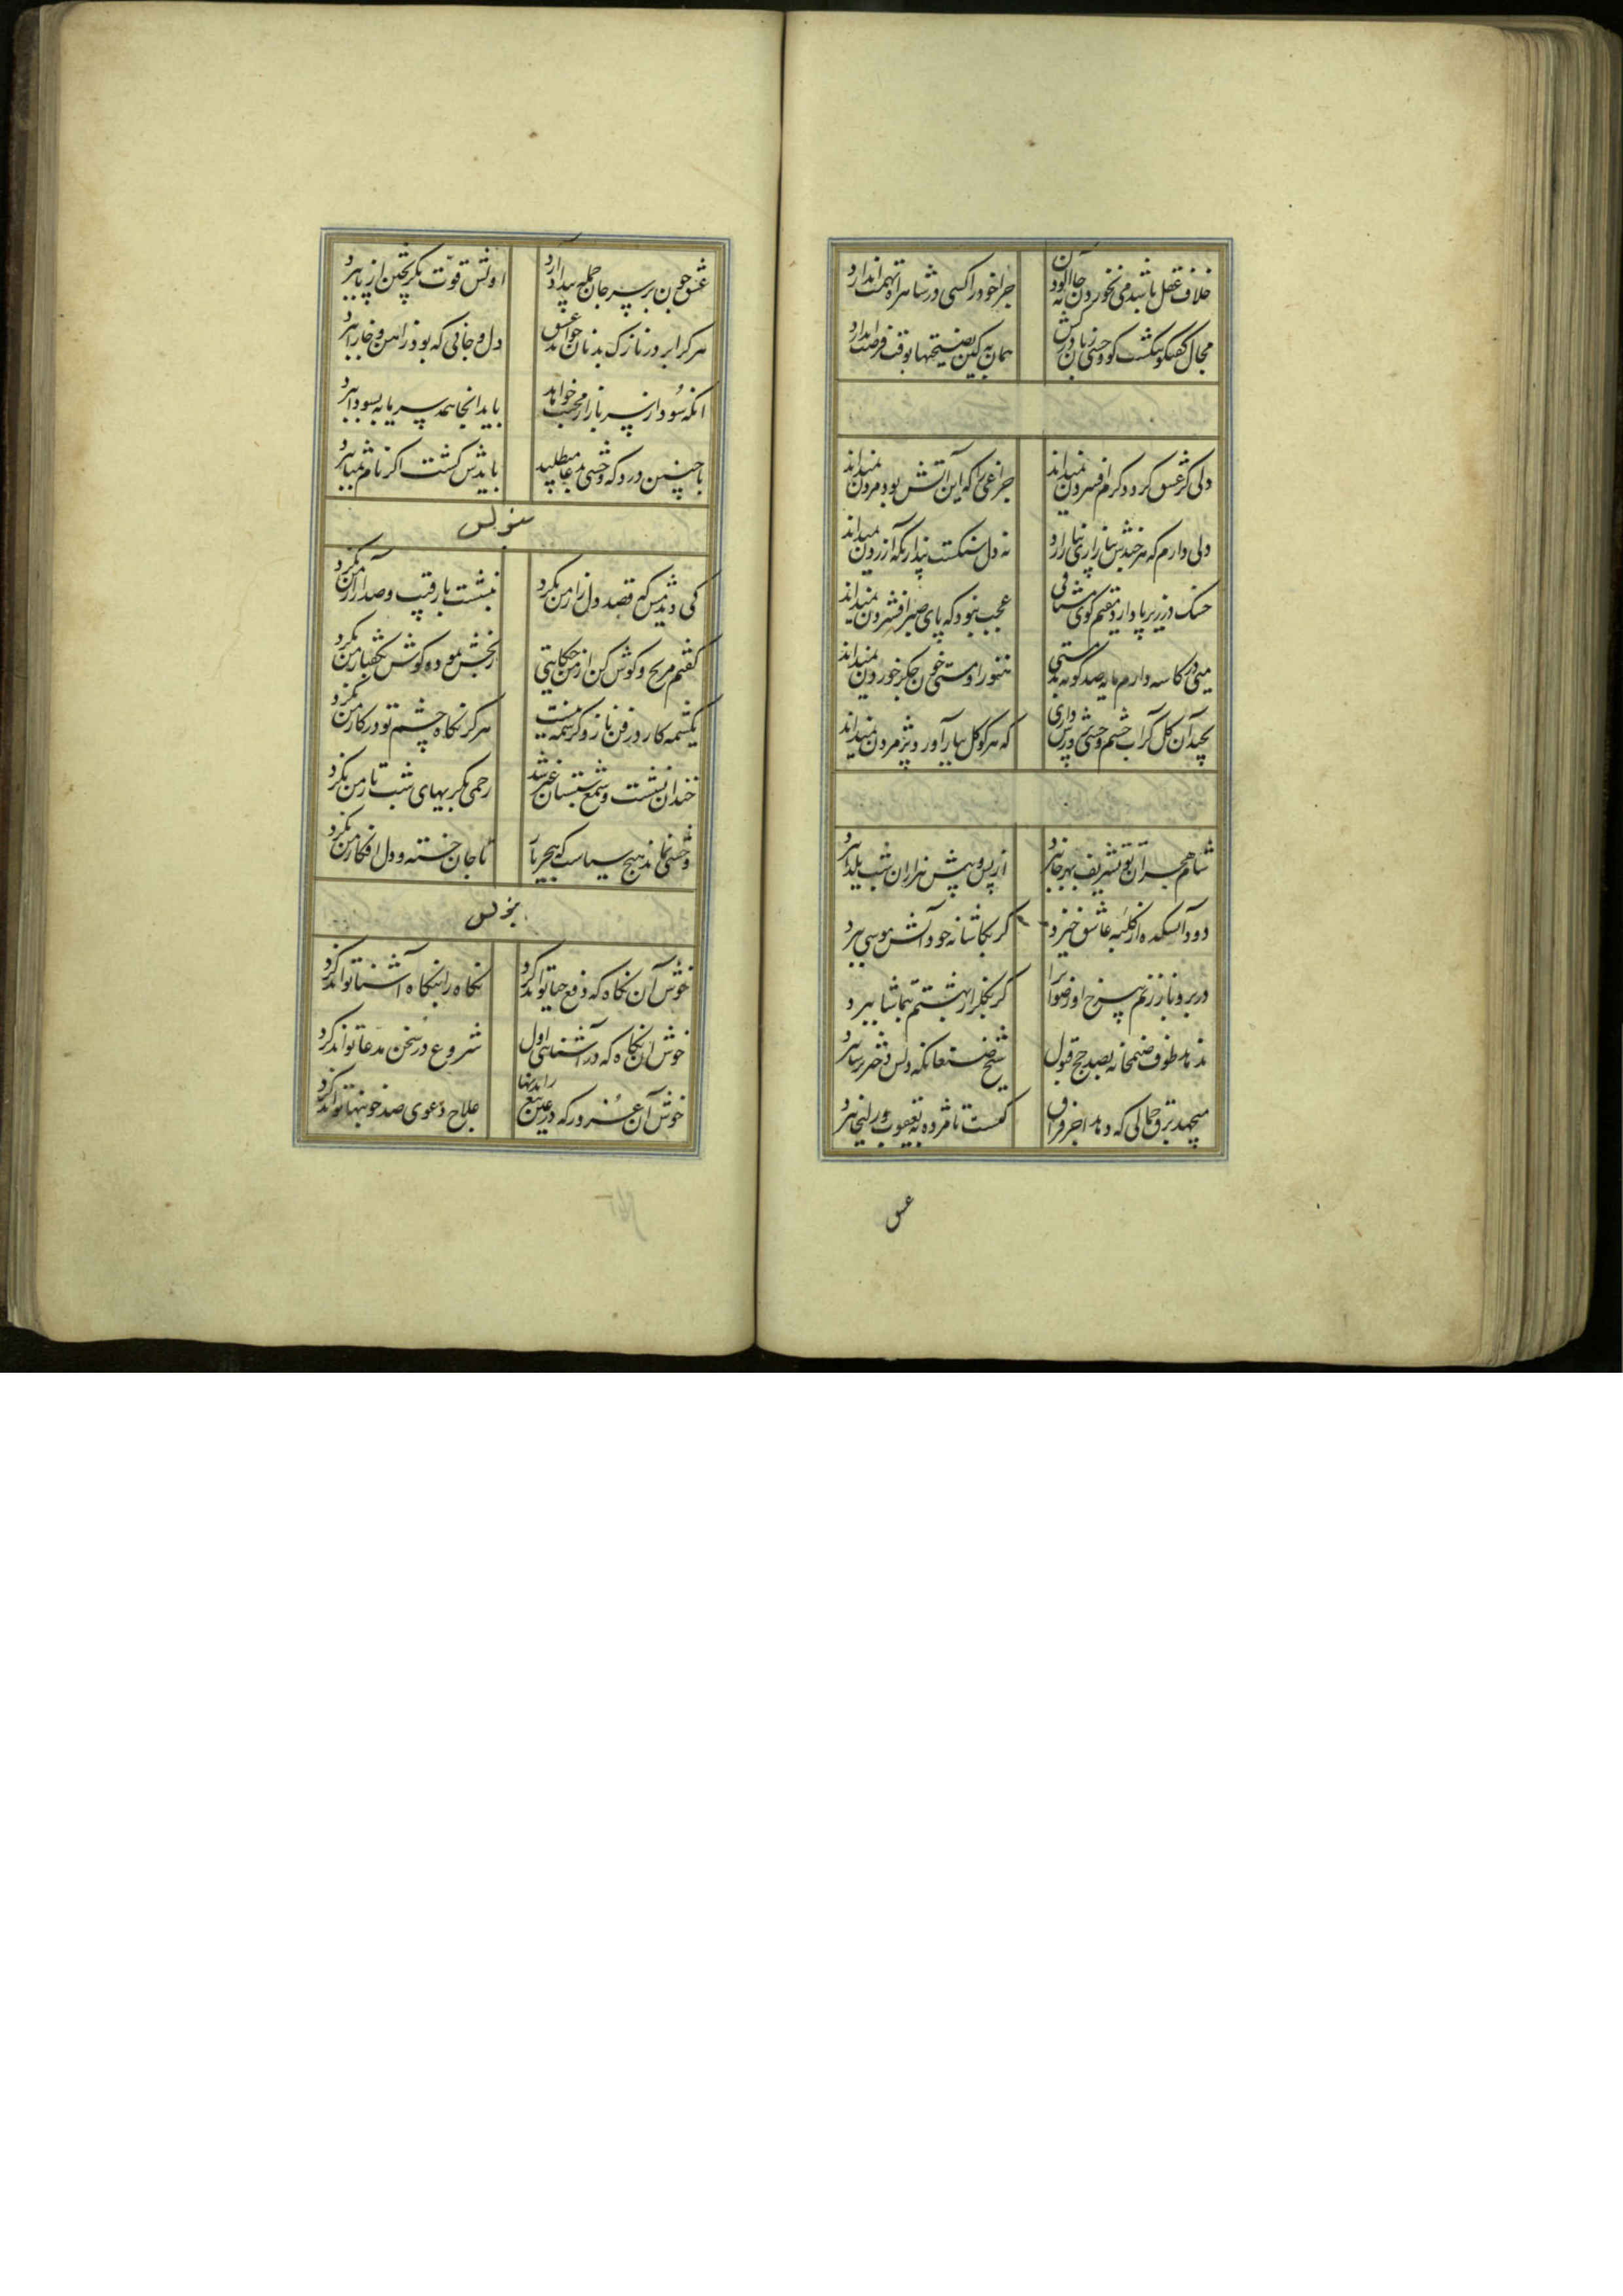 خلاف عقل باشد می نخوردن جامه آلودن
چرا خود را کسی در شاهراه تهمت اندازد
مجال گفتگو نگذشت گو وحشی زبان درکش
همان به کین نصیحتها بوقت فرصت اندازد
دلی کز عشق گردد گرم افسردن نمیداند
چراغی را که این آتش بود مردن نمیداند
دلی دارم که هر چندش بیازاری نیازارد
نه دل سنگست پنداری که آزردن نمیداند
خسک در زیر پا دارد مقیم کوی مشتاقی
عجب نبود که پای صبر افشردن نمیداند
میی در کاسه دارم مایه صد گونه بدمستی
هنوز او مستی خون جگر خوردن نمیداند
بچید آن گل کز آب چشم وحشی پرورش داری
که هر کو گل ببار آورد پژمردن نمیداند
شام هجران تو تشریف بهر جا ببرد
از پس و پیش هزاران شب یلدا ببرد
دود آتشکده از کلبه عاشق خیزد
گر بکاشانه خود آتش موسی ببرد
در بروی باز زنم سرخ او رضوان را
گر بگلزار بهشتم بتماشا ببرد
ندهد طوف صنمخانه بصد حج قبول
شیخ صنعان که دلش دختر ترسا ببرد
میجهد برق جمالی که دهد اجر فراق
کیست تا مژده به یعقوب و زلیخا ببرد
عشق
عشق چون بر سر جان حمله بیداد آرد
اولش قوت بگریختن از پا ببرد
هر کرا بر در نازک بدنان خواند عشق
دل و جانی که بود ز آهن و خارا ببرد
آنکه سود از سر بازار محبت خواهد
باید آنجا همه سرمایه سودا ببرد
با چنین درد که وحشی مدعا میطلبد
بایدش کشت اگر نام مداوا ببرد
کی دیدمش که قصد دل زار من نکرد
ننشست با رقیب و صد آزار من نکرد
گفتم مرنج و گوش کن از من حکایتی
رنجش نمود و گوش بگفتار من نکرد
یک شمه کار در فن ناز و کرشمه نیست
هرگز نگاه چشم تو در کار من نکرد
خندان نشست و شمع شبستان غیر شد
رحمی بگریه‌های شب تار من نکرد
وحشی نماند هیچ سیاست که هجر یار
با جان خسته و دل افکار من نکرد
خوش آن نگاه که دفع حیا تواند کرد
نگاه را بنگاه آشنا تواند کرد
خوش آن نگاه که در آشنایی اول
شروع در سخن مدعا تواند کرد
خوش آن غرور که در عین تیغ راندنها
علاج دعوی صد خونبها تواند کرد